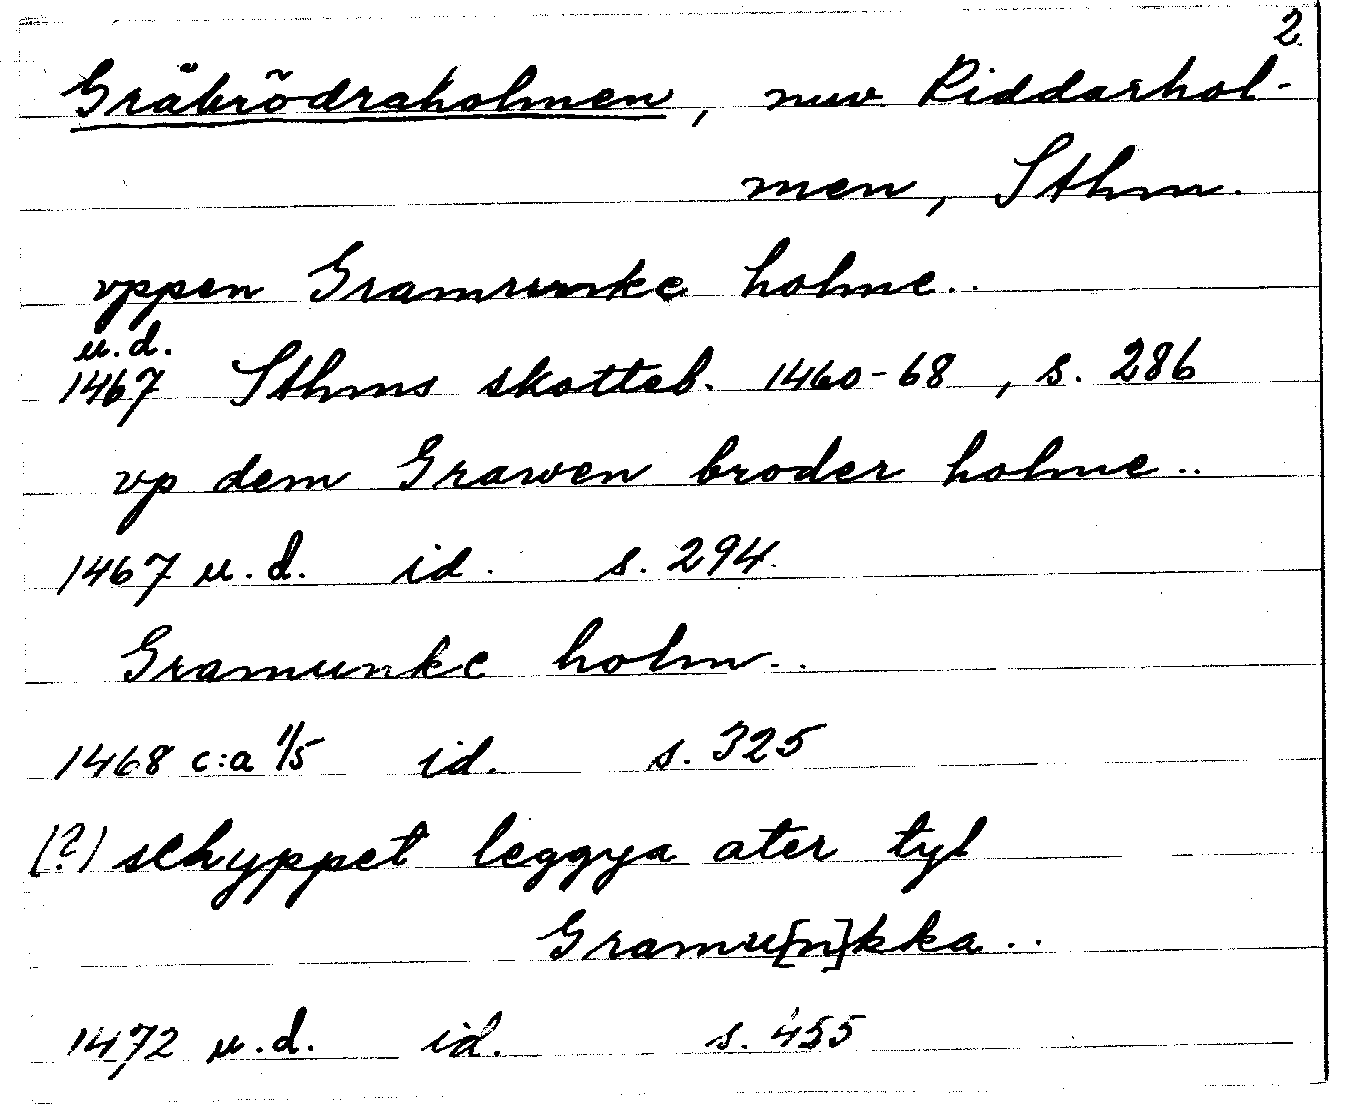 2
Gråbrödraholmen, nuv Riddarhol-
men, Sthm.
vppen Gramunke holme..
u.d.
1467 Sthms skotteb. 1460-68, s. 286
vp dem Grawen broder holme..
1467 u.d. id. s. 294.
Gramunke holm..
1468 c:a 1/5 id. s. 325
(?) schyppet leggya ater tyl
Gramu[n]kka..
1472 u.d. id. s. 455